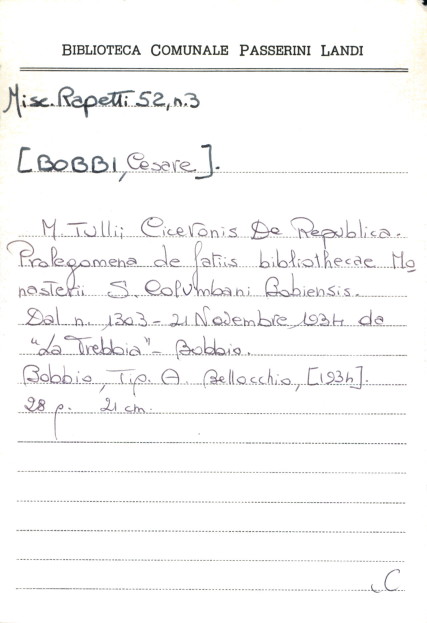 BIBLIOTECA COMUNALE PASSERINI LANDI
Misc. Rapetti 52, n.3
[BOBBI, Cesare].
M. Tullii Ciceronis De Republica.
Prolegomena de fatiis bibliothecae Mo
nasterii S. Columbani Bobiensis.
Dal n. 1303 - 21 Novembre 1934 de
"La Trebbia" - Bobbio.
Bobbio, Tip. A. Bellocchio, [1934].
28 p. 21 cm.
C